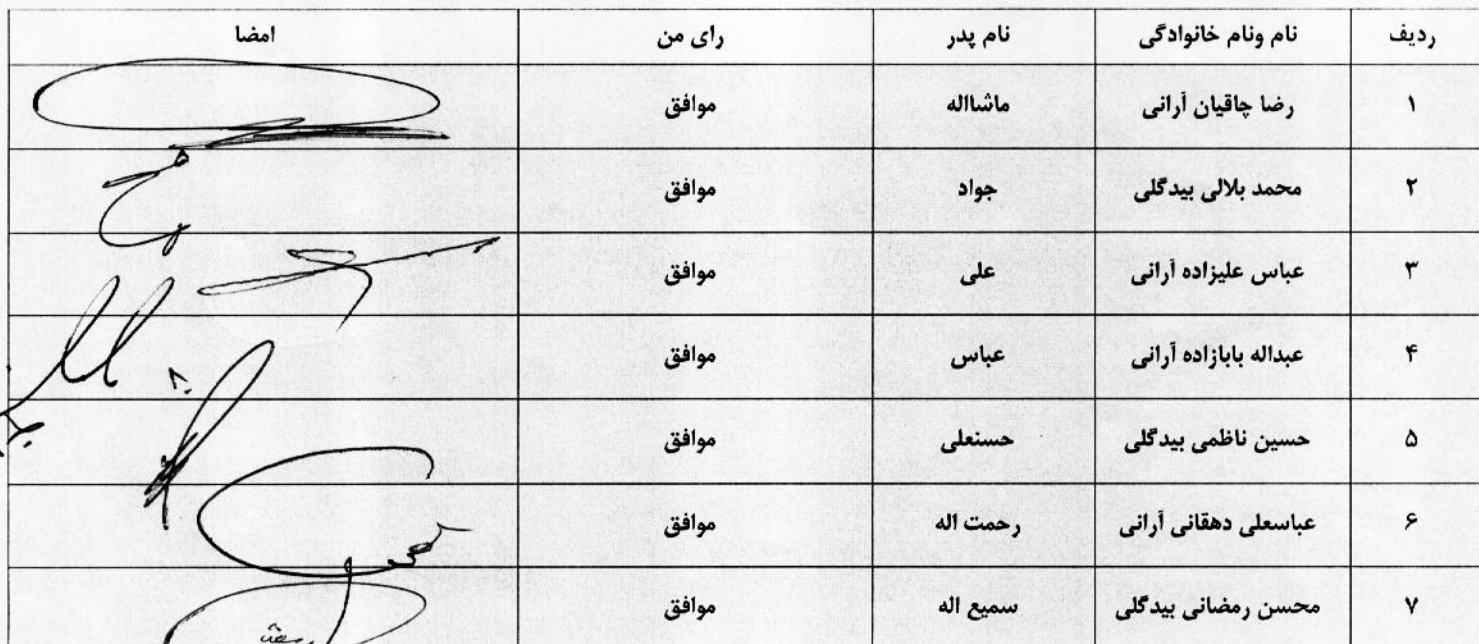 ردیف نام ونام خانوادگی نام پدر رای من امضا
۱ رضا چاقیان آرانی ماشااله موافق
۲ محمد بلالی بیدگلی جواد موافق
۳ عباس علیزاده آرانی علی موافق
۴ عبداله بابازاده آرانی عباس موافق
۵ حسین ناظمی بیدگلی حسنعلی موافق
۶ عباسعلی دهقانی آرانی رحمت اله موافق
۷ محسن رمضانی بیدگلی سمیع اله موافق